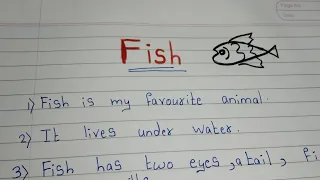 Fish
1) Fish is my favourite animal.
2) It lives under water.
3) Fish has two eyes, a tail,